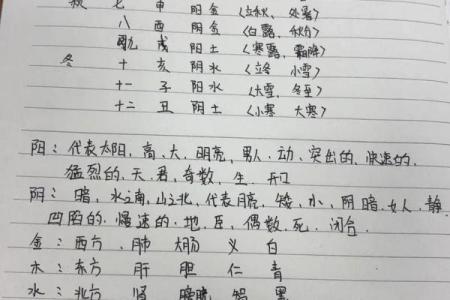 秋 七 申 阳金 (立秋、处暑)
八 酉 阴金 (白露、秋分)
九 戌 阳土 (寒露、霜降)
冬 十 亥 阴水 (立冬 小雪)
十一 子 阳水 (大雪、冬至)
十二 丑 阴土 (小寒 大寒)
阳：代表太阳，高、大、明亮，男人、动、突出的、快速的、
猛烈的、天、君、奇数、生、开
阴：暗，水之南，山之北，代表月亮，矮、小、阴暗、女人、静、
凹陷的、慢速的、地、臣、偶数、死、闭合
金：西方 肺 大肠 义 白
木：东方 肝 胆 仁 青
水：北方 肾 膀胱 智 黑